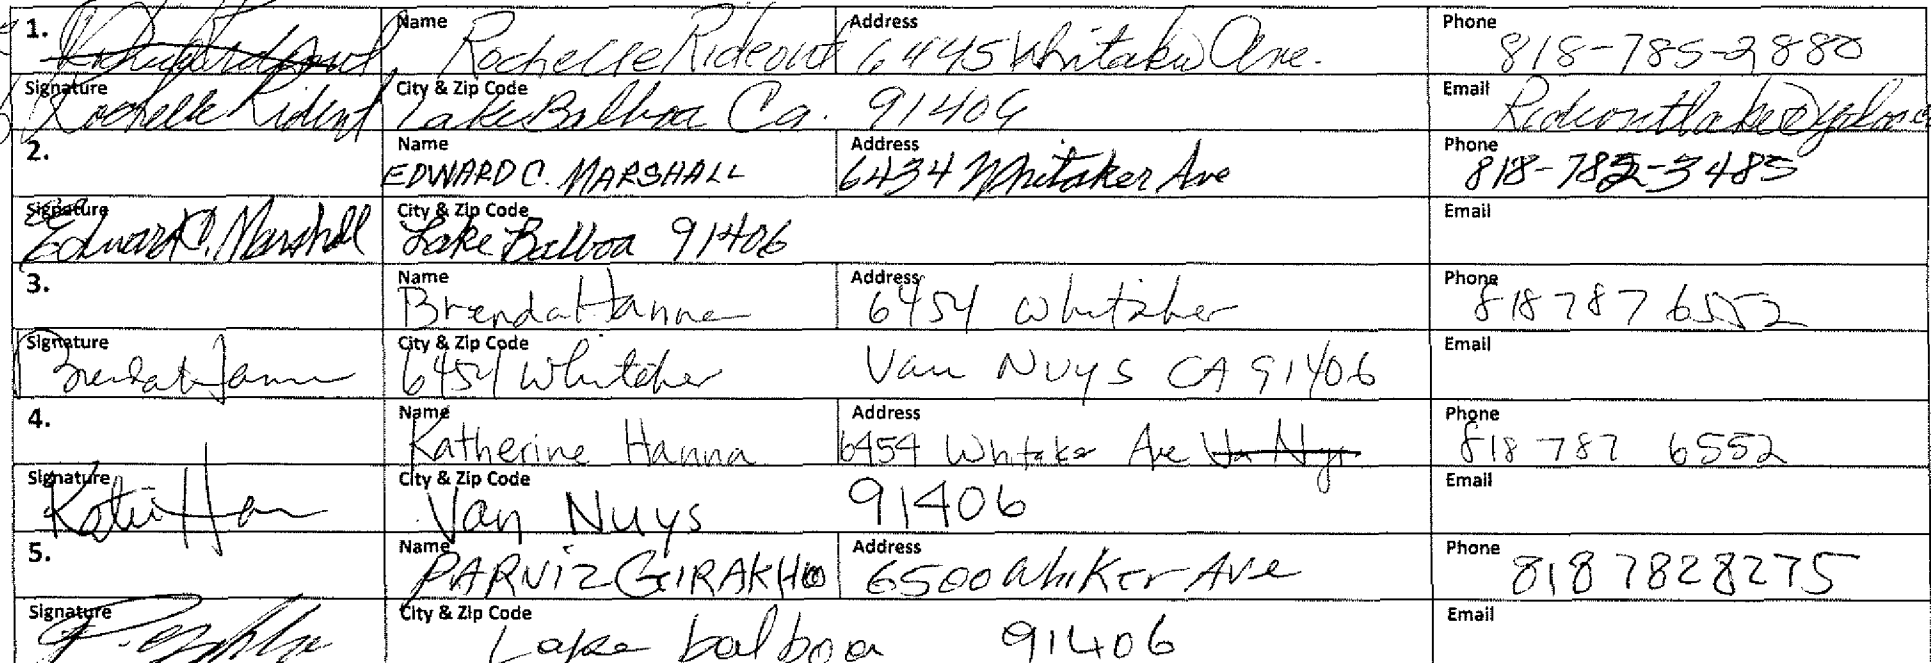 1. Name Rochelle Rideout Address 6445 Whitaker Ave. Phone 818-785-2880
Signature Rochelle Rideout City & Zip Code Lake Balboa Ca. 91406 Email
2. Name EDWARD C. MARSHALL Address 6434 Whitaker Ave Phone 818-782-3485
Signature Edward C. Marshall City & Zip Code Lake Balboa 91406 Email
3. Name Brenda Hanna Address 6454 Whitaker Phone 818 787 6552
Signature Brenda Hanna City & Zip Code 6454 Whitaker Van Nuys CA 91406 Email
4. Name Katherine Hanna Address 6454 Whitaker Ave Phone 818 787 6552
Signature City & Zip Code Van Nuys 91406 Email
5. Name PARVIZ Address 6500 Whiker Ave Phone 8187828275
Signature City & Zip Code Lake balboa 91406 Email